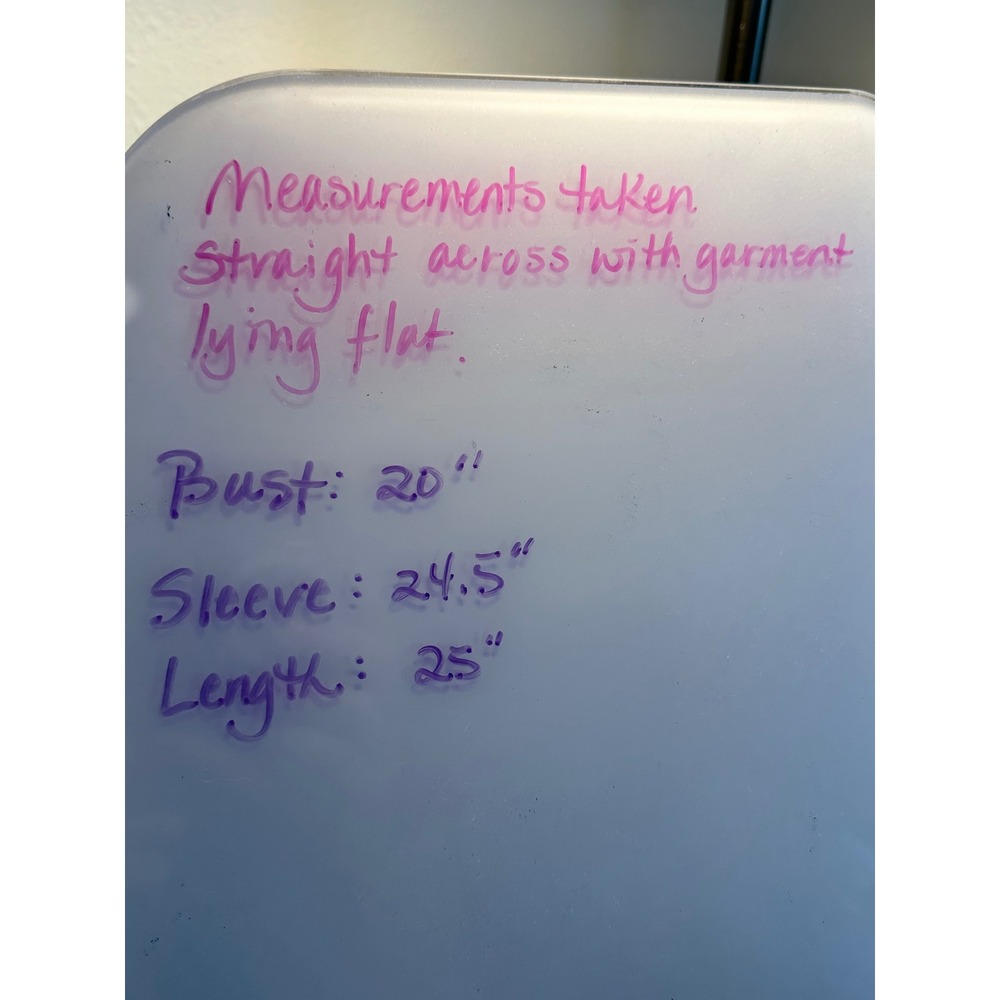 Measurements taken
straight across with garment
lying flat.
Bust: 20"
Sleeve: 24.5"
Length: 25"